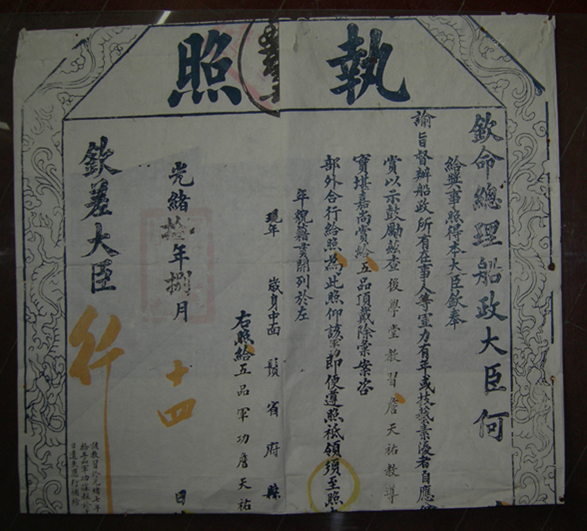 執照
欽命總理船政大臣何
給獎事照得本大臣欽奉
諭旨督辦船政所有在事人等宣力有年或技藝素優者自應
賞以示鼓勵茲查後學堂教習詹天祐教導
實堪嘉尚賞給五品頂戴除彙案咨
部外合行給照為此照仰該軍功即便遵照祗領須至照
年貌籍貫開列於左
現年 歲身中面 鬚 省 府 縣
右照給五品軍功詹天祐
光緒拾年捌月 十四 日
欽差大臣
行